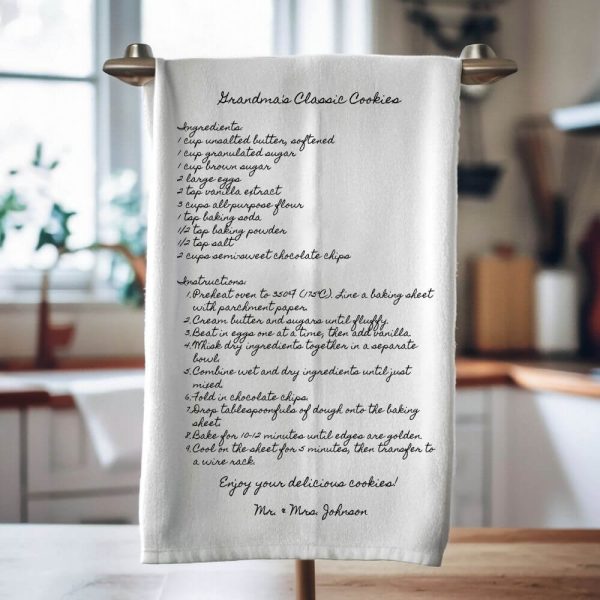 Grandma's Classic Cookies
Ingredients:
1 cup unsalted butter, softened
1 cup granulated sugar
1 cup brown sugar
2 large eggs
2 tsp vanilla extract
3 cups all-purpose flour
1 tsp baking soda
1/2 tsp baking powder
1/2 tsp salt
2 cups semi-sweet chocolate chips
Instructions:
1. Preheat oven to 350°F (175°C). Line a baking sheet
with parchment paper.
2. Cream butter and sugars until fluffy.
3. Beat in eggs one at a time, then add vanilla.
4. Whisk dry ingredients together in a separate
bowl.
5. Combine wet and dry ingredients until just
mixed.
6. Fold in chocolate chips.
7. Drop tablespoonfuls of dough onto the baking
sheet.
8. Bake for 10-12 minutes until edges are golden.
9. Cool on the sheet for 5 minutes, then transfer to
a wire rack.
Enjoy your delicious cookies!
Mr. & Mrs. Johnson